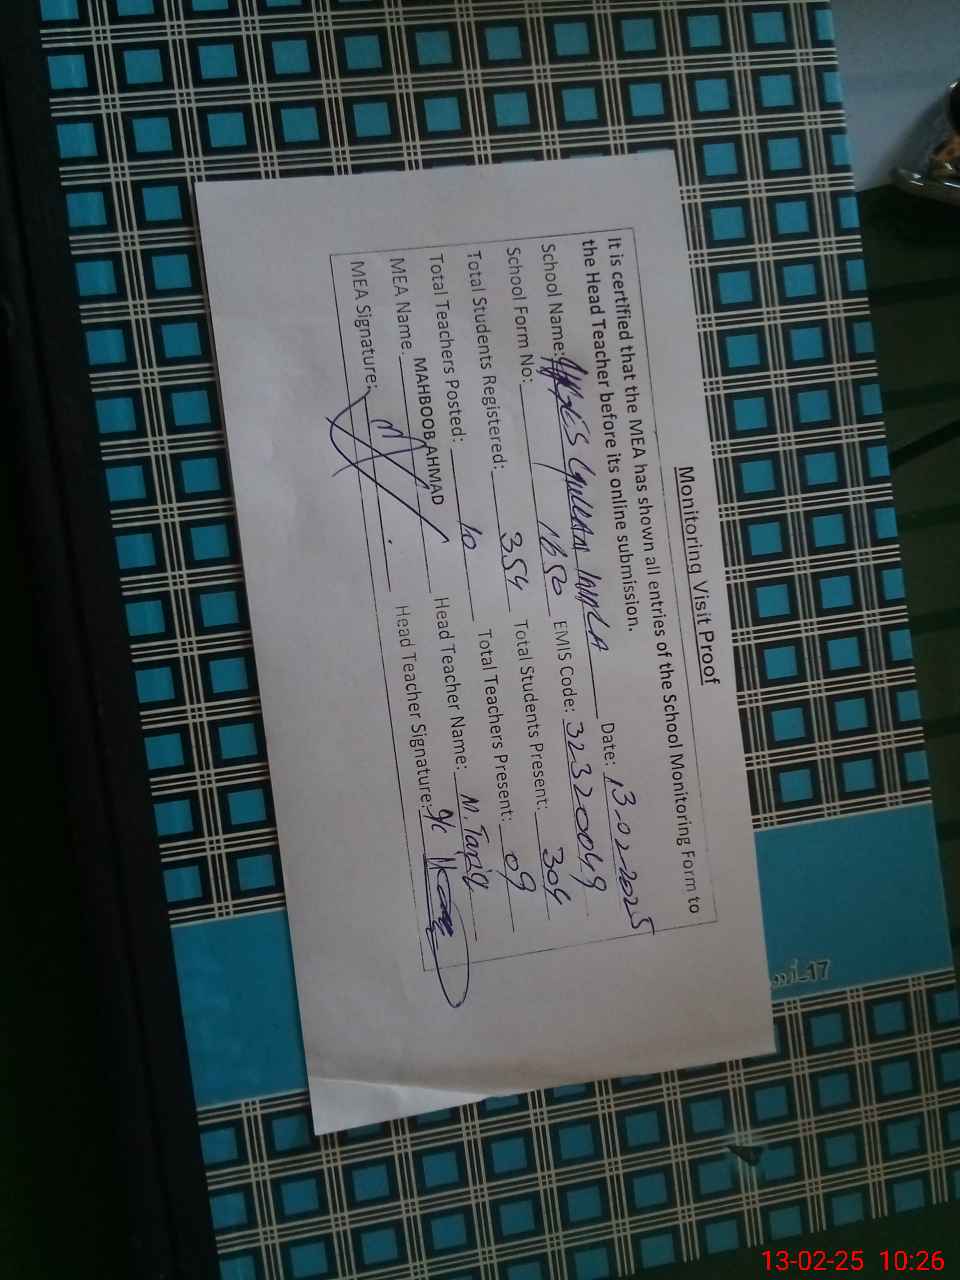 Monitoring Visit Proof
It is certified that the MEA has shown all entries of the School Monitoring Form to
the Head Teacher before its online submission.
School Name: Date: 13-02-2025
School Form No: 1650 EMIS Code: 32320049
Total Students Registered: 354 Total Students Present: 304
Total Teachers Posted: 10 Total Teachers Present: 09
MEA Name. MAHBOOB AHMAD Head Teacher Name: M. Tariq
MEA Signature: Head Teacher Signature:
-17
13-02-25 10:26